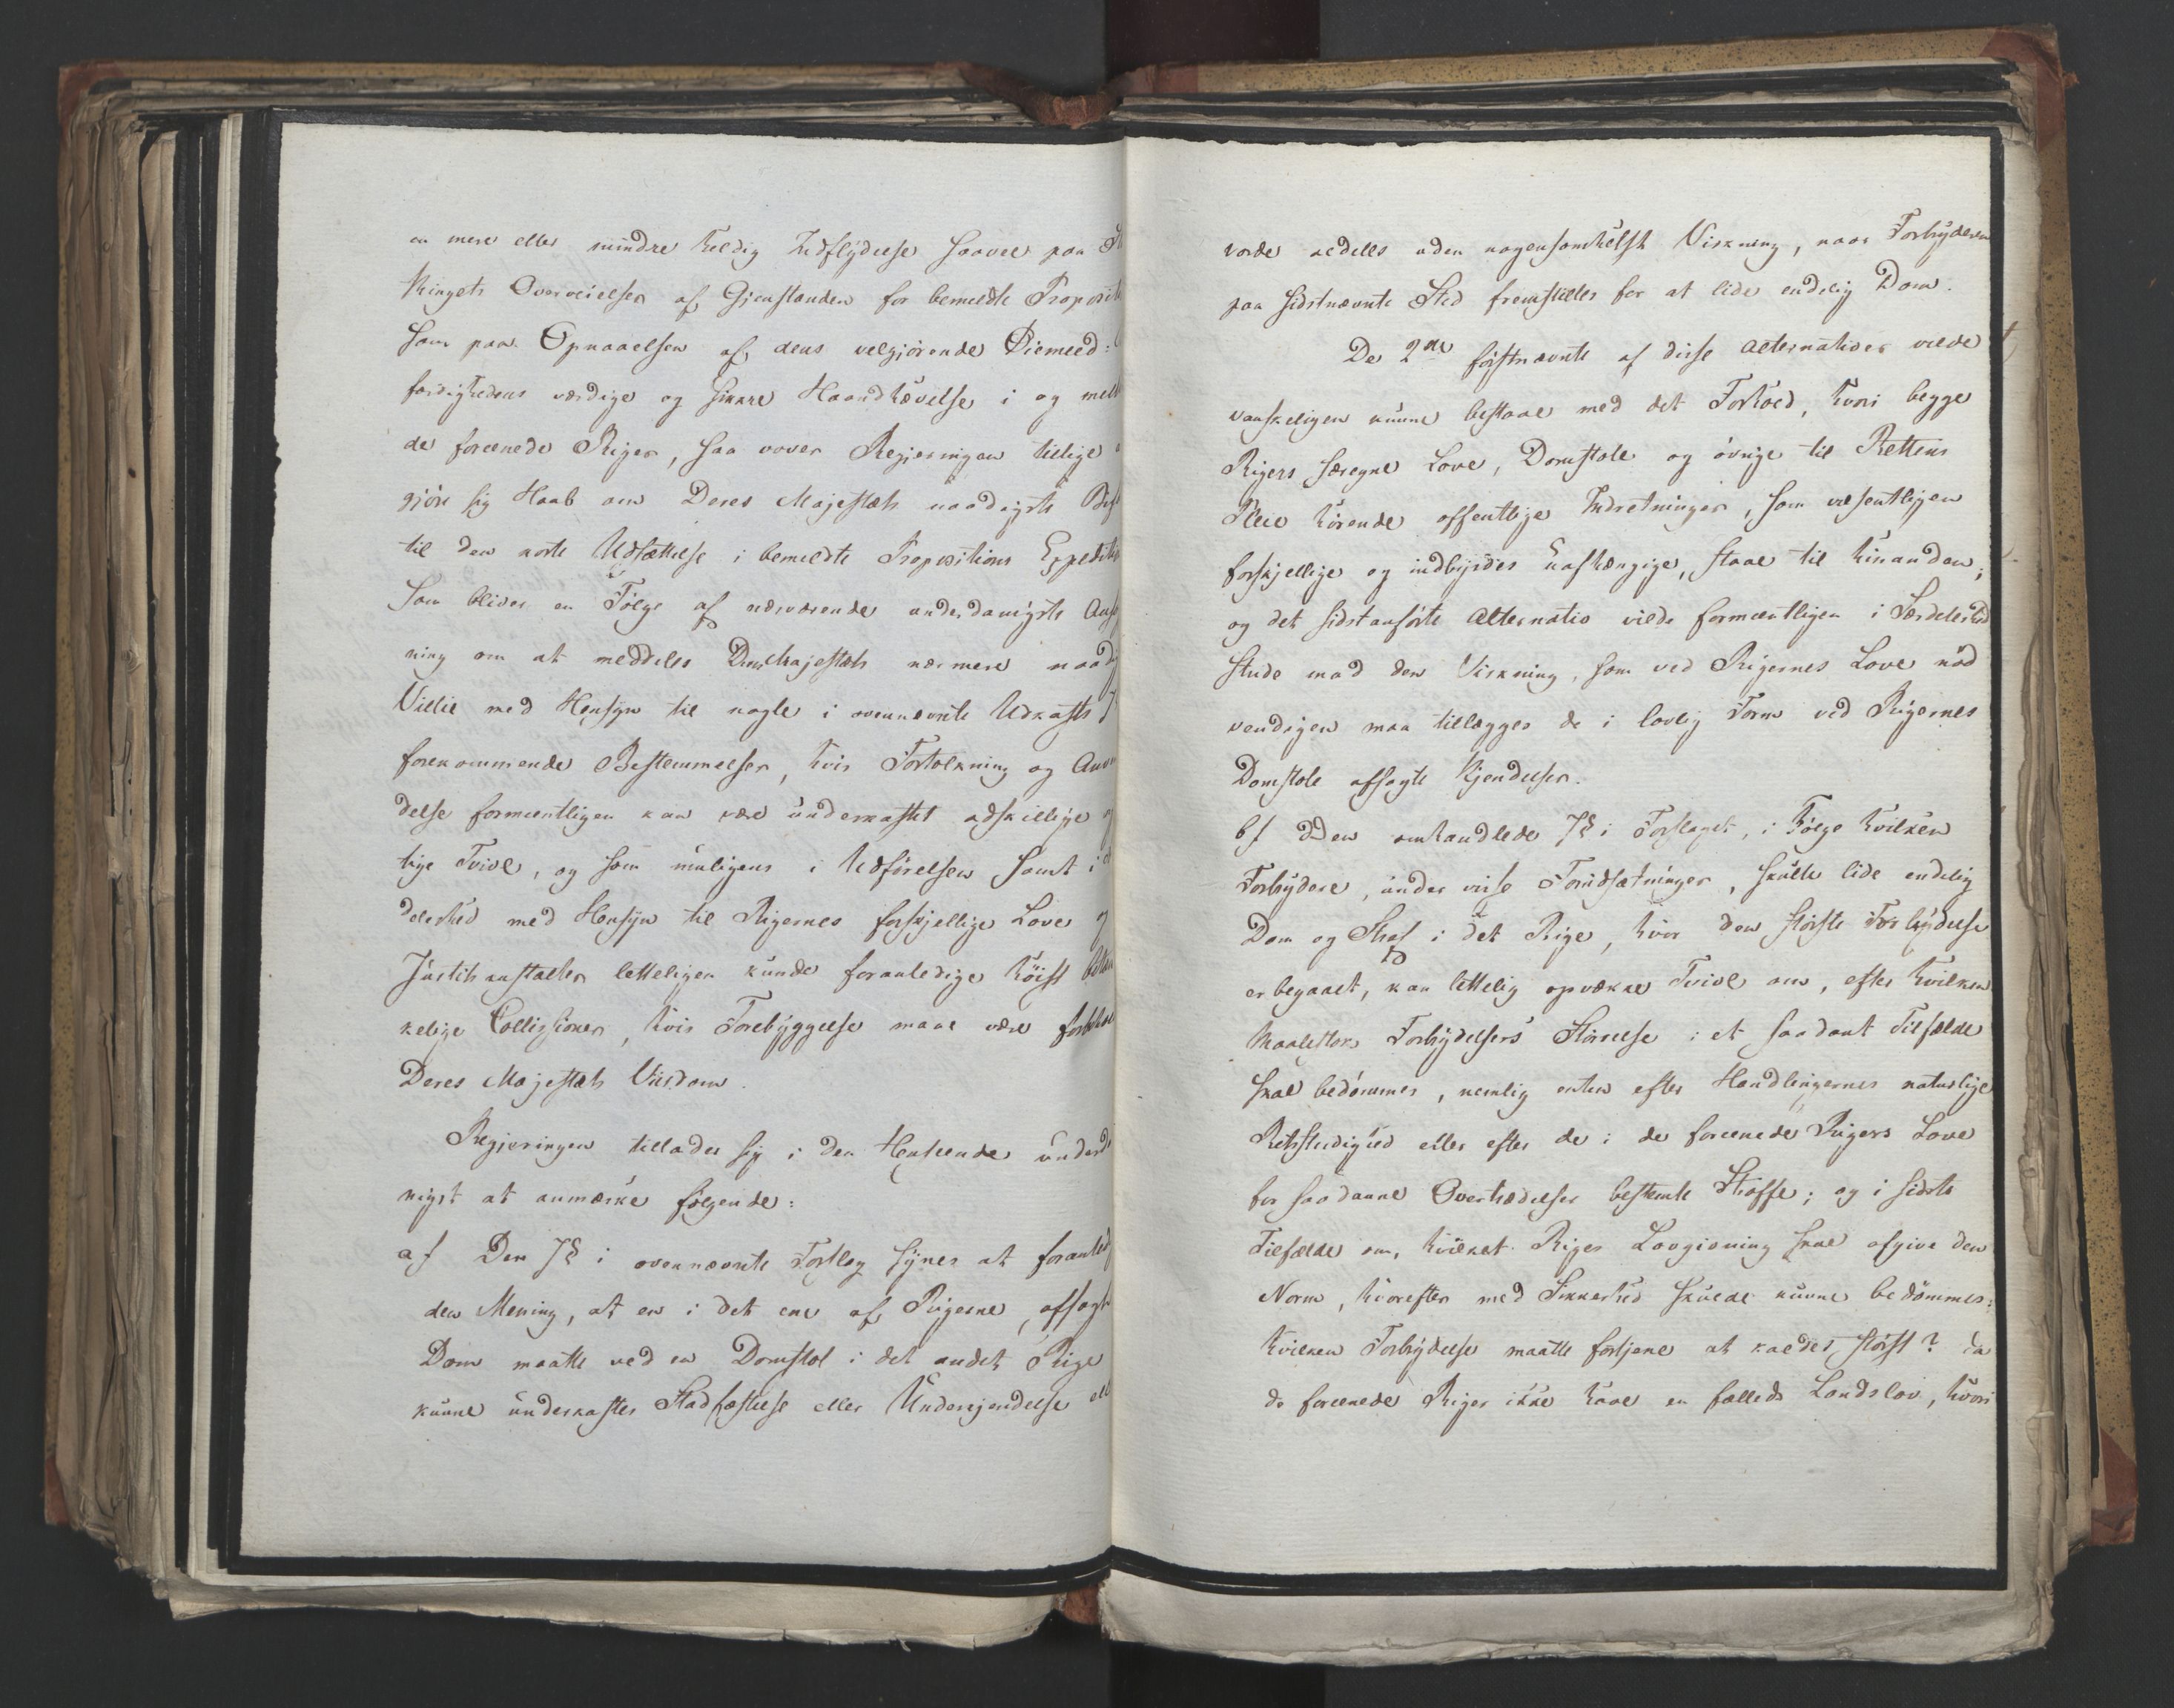 en mere eller mindre heldig Indflydelse saavel paa
thingets Overveielser af Gjenstanden for bemeldte Proposit
som paa Opnaaelsen af dens velgjørende Øiemeed:
færdighedens værdige og sikkre Haandhævelse i og mell
de forenede Riger, saa vover Regjeringen tillige
gjøre sig Haab om Deres Majestæts naadigste
til den korte Udsættelse i bemeldte Propositions Expedition
som bliver en Følge af nærværende underdanigste
ning om at meddeles Deres Majestæts nærmere naadig
Villie med Hensyn til nogle i ovennævnte Udkasts 7
forekommende Bestemmelser, hvis Fortolkning og Anven
delse formeentligen kan være underkastet adskillige
tige Tvivl, og som muligens i Udførelsen samt i
deleshed med Hensyn til Rigernes forskjellige Love og
Justitsanstalter letteligen kunde foranledige höist
kelige Collissioner, hvis Forebyggelse maae være forbeholdt
Deres Majestæts Viisdom.
Regjeringen tillader sig i den Henseende underda
nigst at anmærke følgende:
a/ Den 7§ i ovennævnte Forslag synes at foranled
den Mening, at en i det ene af Rigerne, afsagt
Dom maatte ved en Domstol i det andet Rige
kunne underkastes Stadfæstelse eller Underkjendelse ell
vorde aldeles uden nogensomhelst Virkning, naar Forbryderen
paa sidstnævnte Sted fremstilles for at lide endelig Dom.
De 2de förstnævnte af disse Alternativer vilde
vanskeligen kunne bestaae med det Forhold, hvori begge
Rigers særegne Love, Domstole og øvrige til Rettens
Pleie hørende offentlige Indretninger, som væsentligen
forskjellige og indbyrdes uafhængige, staae til hinanden;
og det sidstanførte Alternativ vilde formeentligen i Særdeleshed
stride mod den Virkning, som ved Rigernes Love nød
vendigen maa tillægges de i lovlig Form ved Rigernes
Domstole afsagte Kjendelser.
b/ Den omhandlede 7§ i Forslaget, i Følge hvilken
Forbrydere, under visse Forudsætninger, skulle lide endelig
Dom og Straf i det Rige, hvor den største Forbrydelse
er begaaet, kan lettelig opvække Tvivl om, efter hvilken
Maalestok Forbrydelsers Størrelse i et saadant Tilfælde
skal bedømmes, nemlig enten efter Handlingernes naturlige
Retsstridighed eller efter de i de forenede Rigers Love
for saadanne Overtrædelser bestemte Straffe; og i sidste
Tilfælde om, hvilket Riges Lovgivning skal afgive den
Norm, hvorefter med Sikkerhed skulde kunne bedömmes:
hvilken Forbrydelse maatte fortjene at kaldes størst? da
de forenede Riger ikke have en fælleds Landslov, hvori